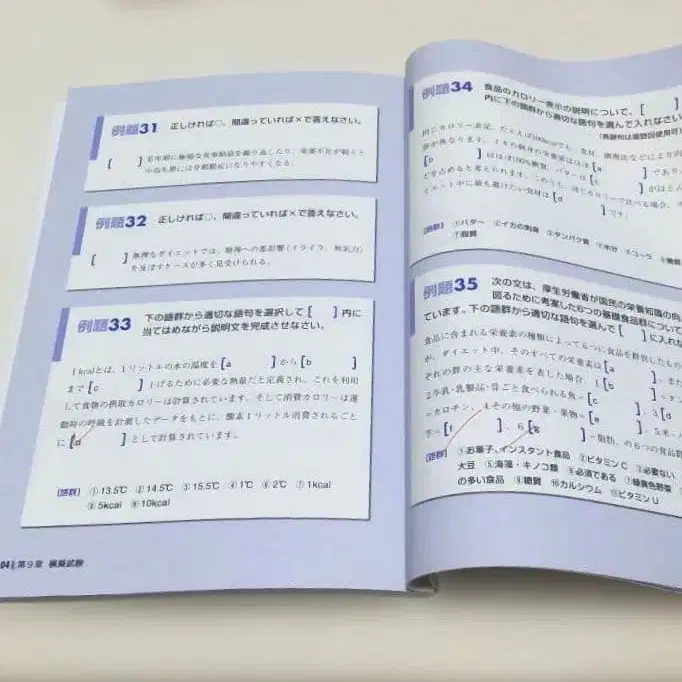 例題31 正しければ○、間違っていれば×で答えなさい。
[ ]若年期に極端な食事制限を繰り返したり、栄養不足が続くと
中高年期には骨粗鬆症になりやすくなる。
例題32 正しければ○、間違っていれば×で答えなさい。
[ ]無理なダイエットでは、精神への悪影響(イライラ、無気力)
を及ぼすケースが多く見受けられる。
例題33 下の語群から適切な語句を選択して[ ]内に
当てはめながら説明文を完成させなさい。
1kcalとは、1リットルの水の温度を[a ]から[b ]
まで[c ]上げるために必要な熱量だと定義され、これを利用
して食物の摂取カロリーは計算されています。そして消費カロリーは運
動時の呼吸を計測したデータをもとに、酸素1リットル消費されるごと
に[d ]として計算されています。
[語群] ①13.5℃ ②14.5℃ ③15.5℃ ④1℃ ⑥2℃ ⑦1kcal
⑧5kcal ⑨10kcal
04 第9章 模擬試験
例題34 食品のカロリー表示の説明について、[ ]
内に下の語群から適切な語句を選んで入れなさい
(各語句は複数回使用可)
同じカロリー表記、たとえば100kcalでも、食材、調理法などにより
容が異なります。イカの刺身の栄養素はほぼ[a ]であり
[b ]はほぼ100%糖質、バターは[c ]がほとん
どを占めると考えられます。このうち、同じカロリーで比べる場合、
イエット中に最も避けたい食材は[d ]です。
[語群] ①バター ②イカの刺身 ③タンパク質 ④水分 ⑤コーラ ⑥糖質
⑦脂質
例題35 次の文は、厚生労働省が国民の栄養知識の向
図るために考案した6つの基礎食品群につい
ています。下の語群から適切な語句を選んで[ ]に入れな
食品に含まれる栄養素の種類によって6つに食品を群別したもの
が、ダイエット中、そのすべての栄養素は[a ]。また
ぞれの群の主な栄養素を表した場合、1.[b ]=タン
2牛乳・乳製品・骨ごと食べられる魚=[c ]、3[d
=カロチン、4その他の野菜・果物=[e ]、5米・パ
芋=[f ]、6[g ]=脂肪、の6つの食品群
[語群] ①お菓子、インスタント食品 ②ビタミンC ③必要ない
大豆 ⑤海藻・キノコ類 ⑥必須である ⑦緑黄色野菜
の多い食品 ⑨糖質 ⑩カルシウム ⑪ビタミンU